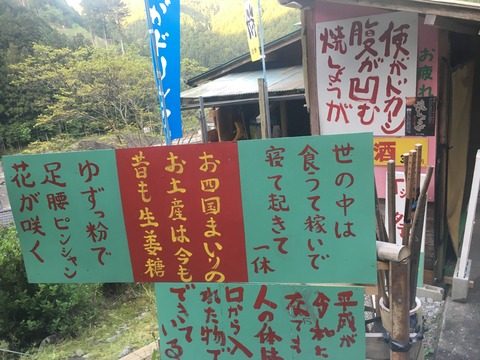 便がドカーン
腹が凹む
焼しょうが
お疲れ
酒
世の中は
食うて稼いで
寝て起きて
一休
お四国まいりの
お土産は今も
昔も生姜糖
ゆずっ粉で
足腰ピンシャン
花が咲く
平成が
令和に
なっても
人の体は
口から入
れた物で
できている